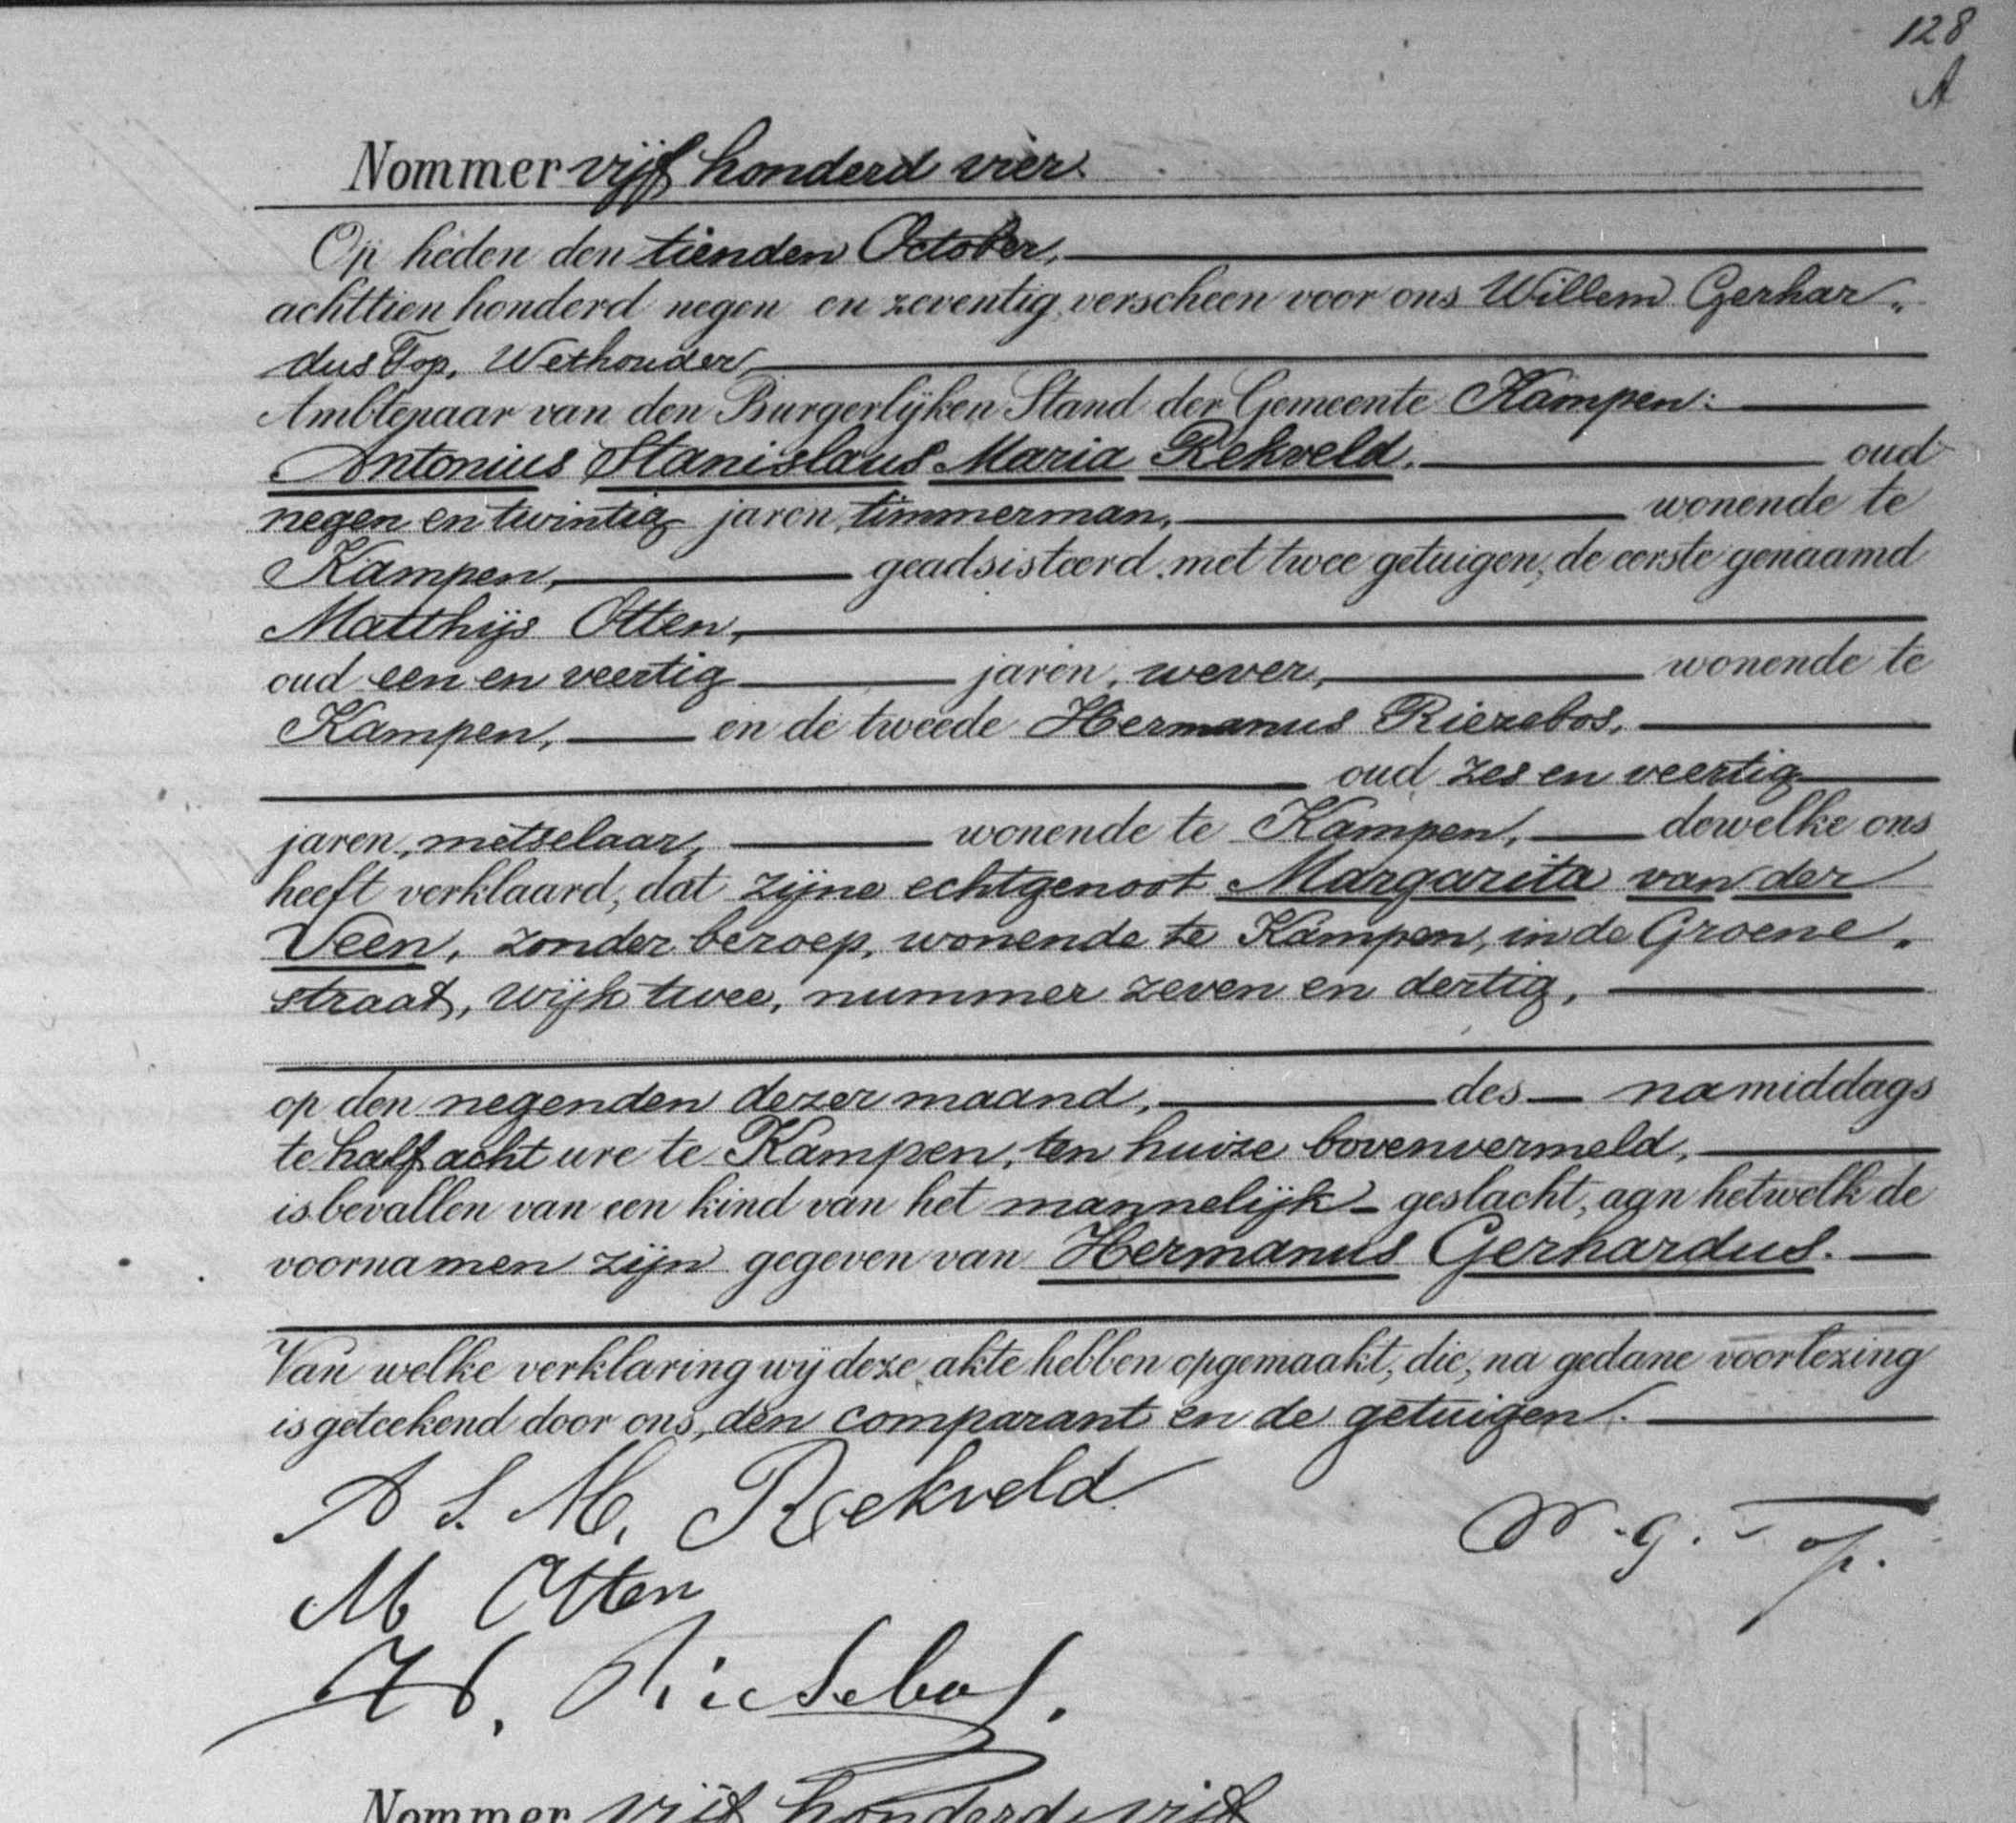 128
A
Nommer vijf honderd vier.
Op heden den tienden October,
achttien honderd negen en zeventig, verscheen voor ons Willem Gerhar„
dus Top, Wethouder,
Ambtenaar van den Burgerlijken Stand der Gemeente Kampen:
Antonius Stanislaus Maria Rekveld, oud
negen en twintig jaren, timmerman, wonende te
Kampen, geadsisteerd met twee getuigen, de eerste genaamd
Matthijs Otten,
oud een en veertig jaren, wever, wonende te
Kampen, en de tweede Hermanus Riezebos,
oud zes en veertig
jaren, metselaar, wonende te Kampen, dewelke ons
heeft verklaard, dat zijne echtgenoot Margarita van der
Veen, zonder beroep, wonende te Kampen, in de Groene„
straat, wijk twee, nummer zeven en dertig,
op den negenden dezer maand, des namiddags
te half acht ure te Kampen, ten huize bovenvermeld,
is bevallen van een kind van het mannelijk geslacht, aan hetwelk de
voornamen zijn gegeven van Hermanus Gerhardus.
Van welke verklaring wij deze akte hebben opgemaakt, die, na gedane voorlezing
is geteekend door ons, den comparant en de getuigen.
A S. M. Rekveld
W. G. Top.
M Otten
H. Riesebos.
Nommer vijf honderd vijf